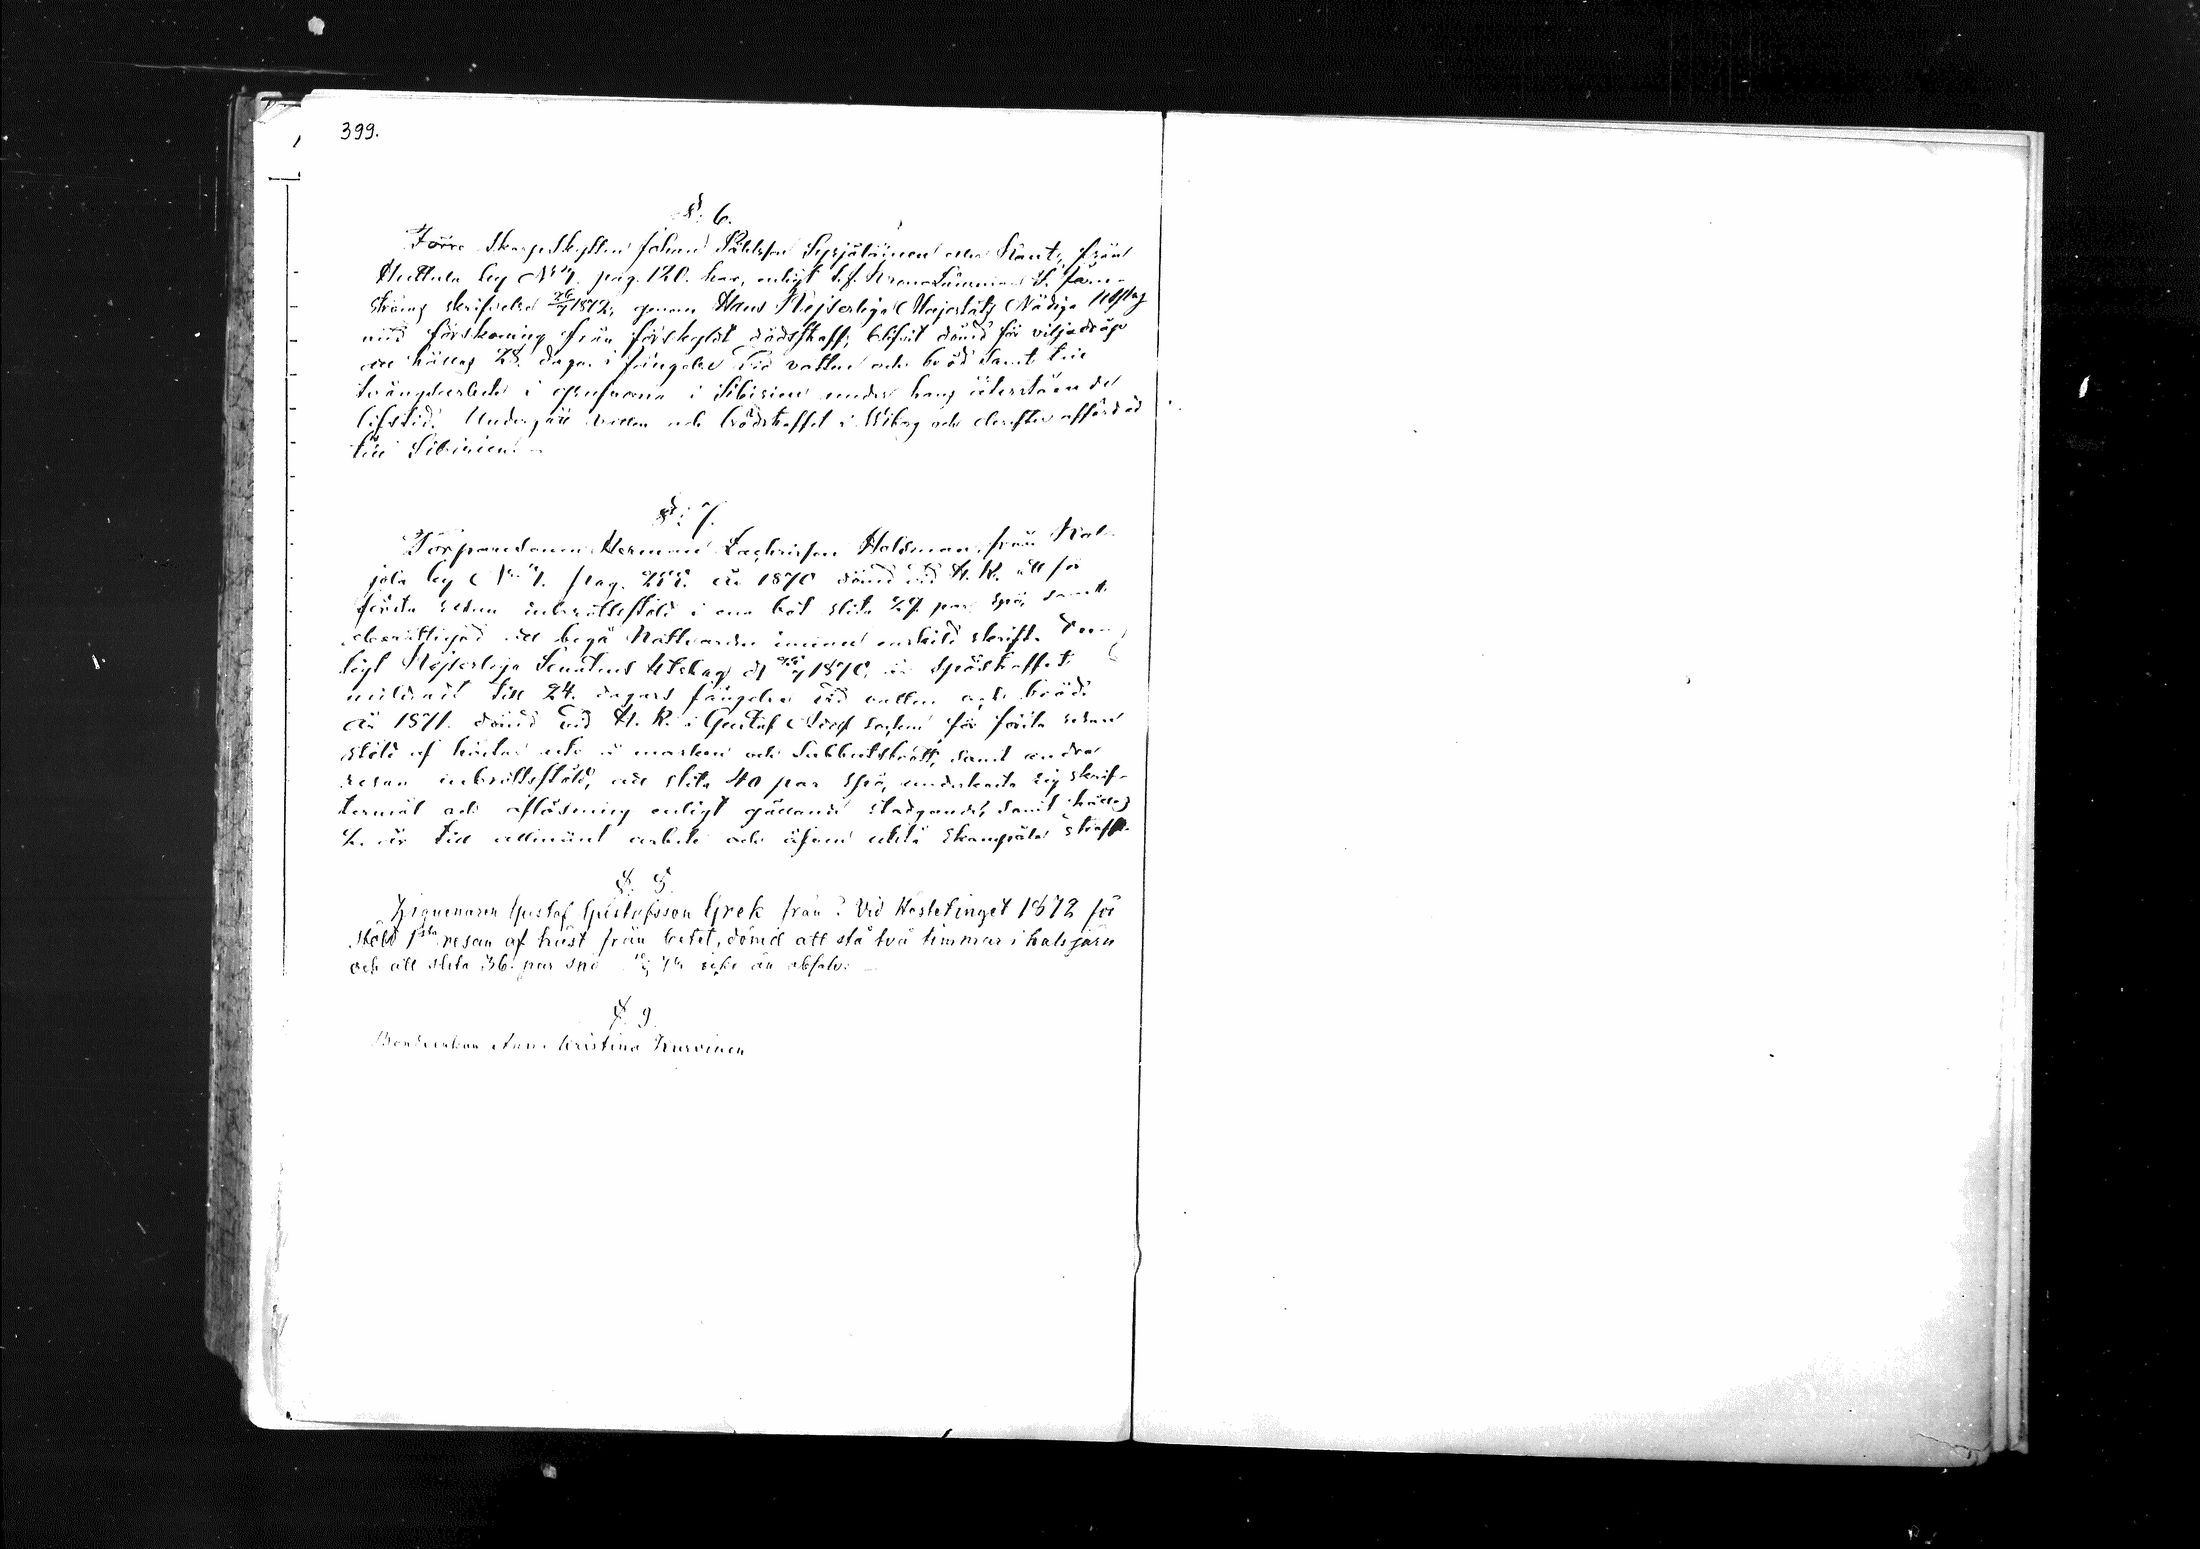 399.
§. 6.
Förre Skarpskytten Johan Påhlsson Syrjäläinen eller Kant, från
Huttula by No 4. pag. 120. har, enligt t.f. KronoLänsman S. Järn-
ströms skrifvelse 26/7 1872, genom Hans Kejserliga Majestäts Nådiga Utslag
med förskoning från förskyldt dödsstraff, blifvit dömd för viljadråp
att hållas 28 dagar i fängelse vid vatten och bröd samt till
tvångsarbete i grufvorna i Sibirien under hans återstående
lifstid. Undergått vatten och brödstraffet i Wiborg och derefter affärdad
till Sibirien. –
§. 7.
Torparesonen Herman Zachrisson Holdman från
jola by No 4. pag. 288. År 1870 dömd vid H. R. att för
första resan inbrottsstöld i en bot slita 27 par spö, samt
oberättigad att begå Nattvarden innan enskild skrift.
ligt Kejserliga Senatens Utslag d 1870, är spöstraffet
mildradt till 24. dagars fängelse vid vatten och bröd.
År 1871. dömd vid H. R. i Gustaf Adolf socken för första resan
stöld af hästar ute å marken och Sabbatsbrott, samt andra
resan inbrottsstöld, att slita 40 par spö, underkasta sig skrif-
termål och aflösning enligt gällande stadgande, samt hållas
2. år till allmänt arbete och äfven utstå skampåle straff.
§. 8.
Zigenaren Gustaf Gustafsson Grek från ? Vid Höstetinget 1872 för
stöld 1sta resan af häst från betet, dömd att stå två timmar i halsjärn
och att slita 36. par spö icke än absolv. –
§. 9.
Bondeenkan Anna Kristina Kurvinen